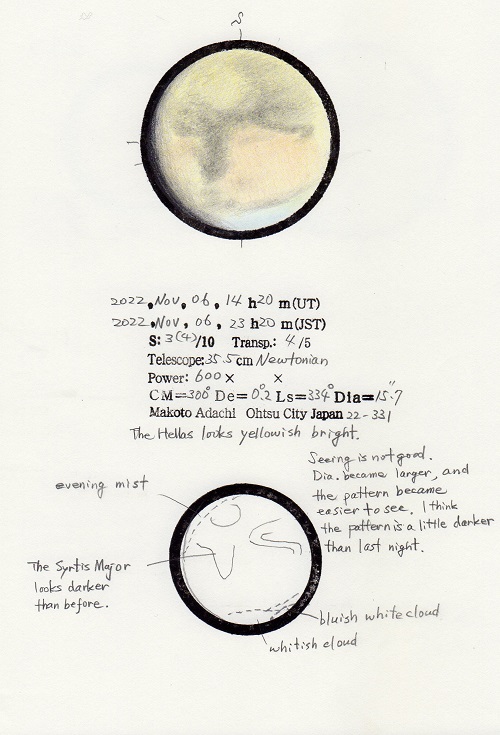 S
2022, Nov, 06, 14 h 20 m (UT)
2022, Nov, 06, 23 h 20 m (JST)
S: 3(4)/10 Transp.: 4/5
Telescope: 35.5cm Newtonian
Power: 600 × ×
CM=300° De=0.2° Ls=334° Dia=15.7"
Makoto Adachi Ohtsu City Japan 22-331
The Hellas looks yellowish bright.
Seeing is not good.
Dia. became larger, and
the pattern became
easier to see. I think
the pattern is a little darker
than last night.
evening mist
The Syrtis Major
looks darker
than before.
bluish white cloud
whitish cloud